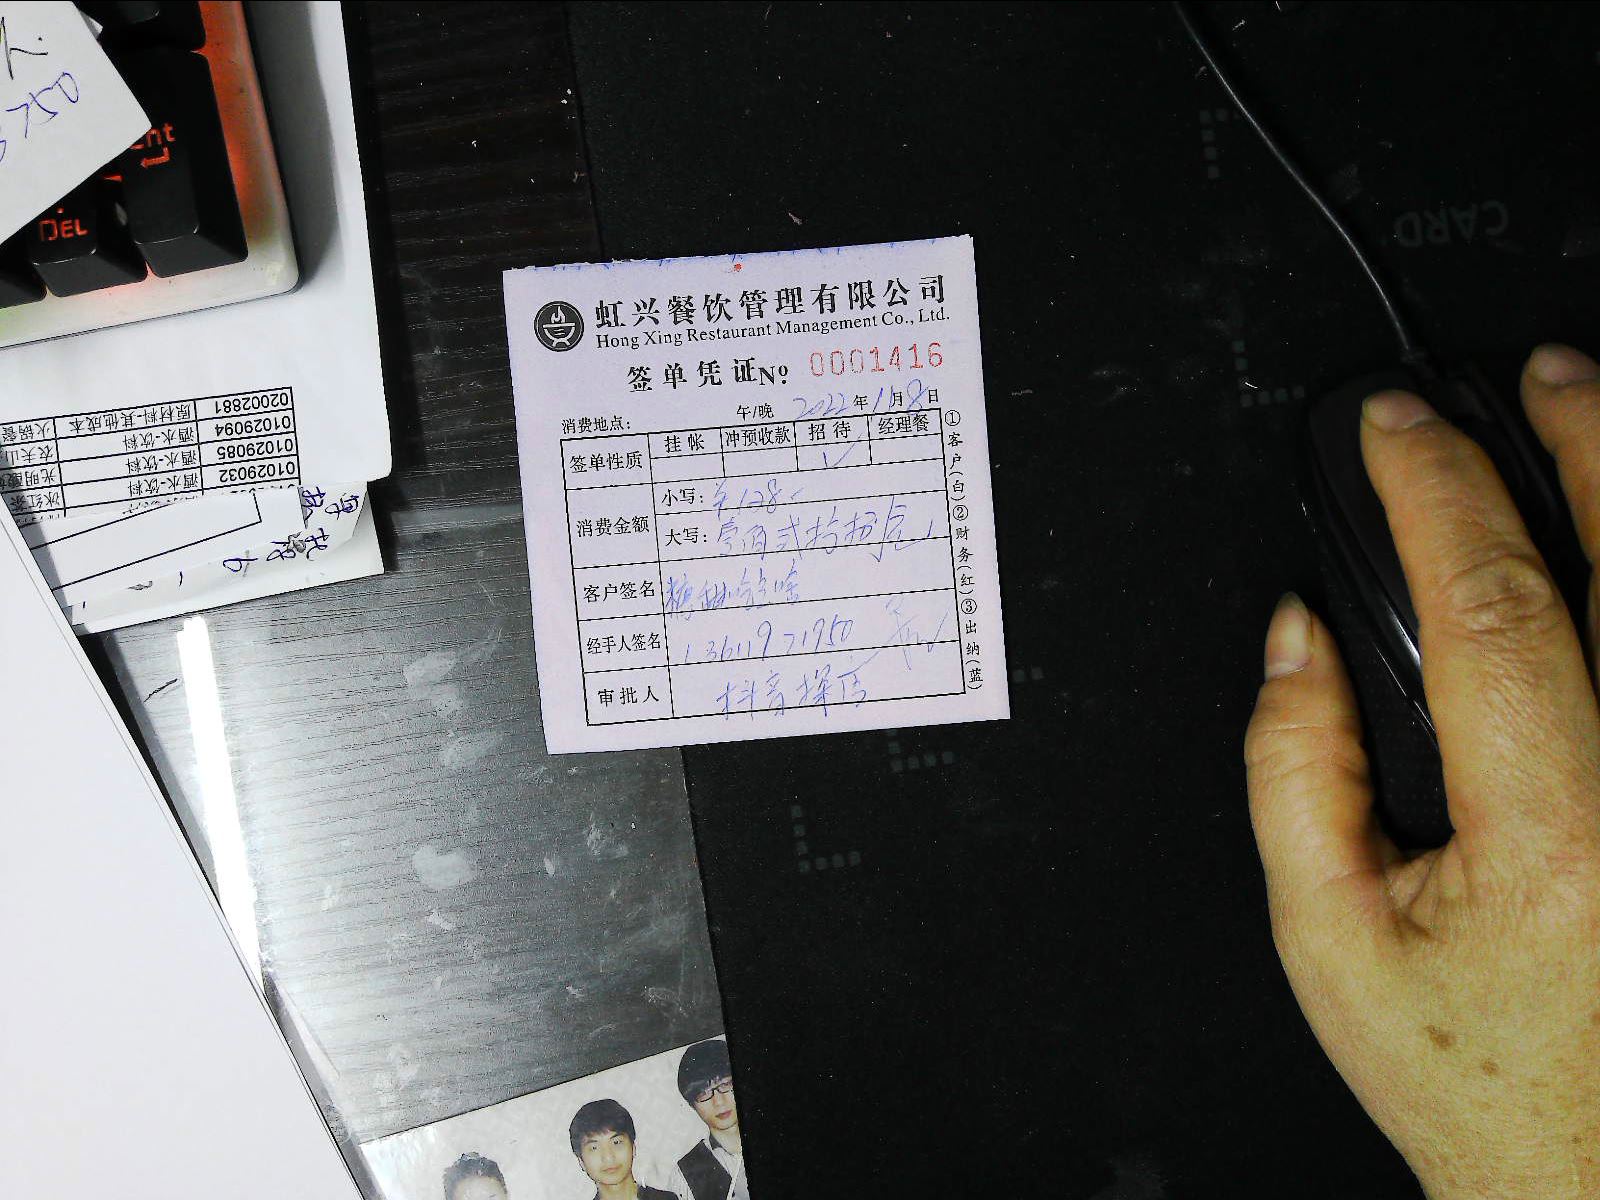 750
Ent
DEL
CARD
02002881 原材料-其他成本 火锅餐
01029094 酒水-饮料
01029085 酒水-饮料
01029032 酒水-饮料 冰红茶
虹兴餐饮管理有限公司
Hong Xing Restaurant Management Co., Ltd.
签单凭证№ 0001416
消费地点: 午/晚 2022年1月8日
签单性质 挂帐 冲预收款 招待 经理餐
✓
消费金额 小写: ¥128-
大写: 壹佰贰拾捌元
客户签名
经手人签名 13611971950
审批人 抖音探店
①客户(白)②财务(红)③出纳(蓝)